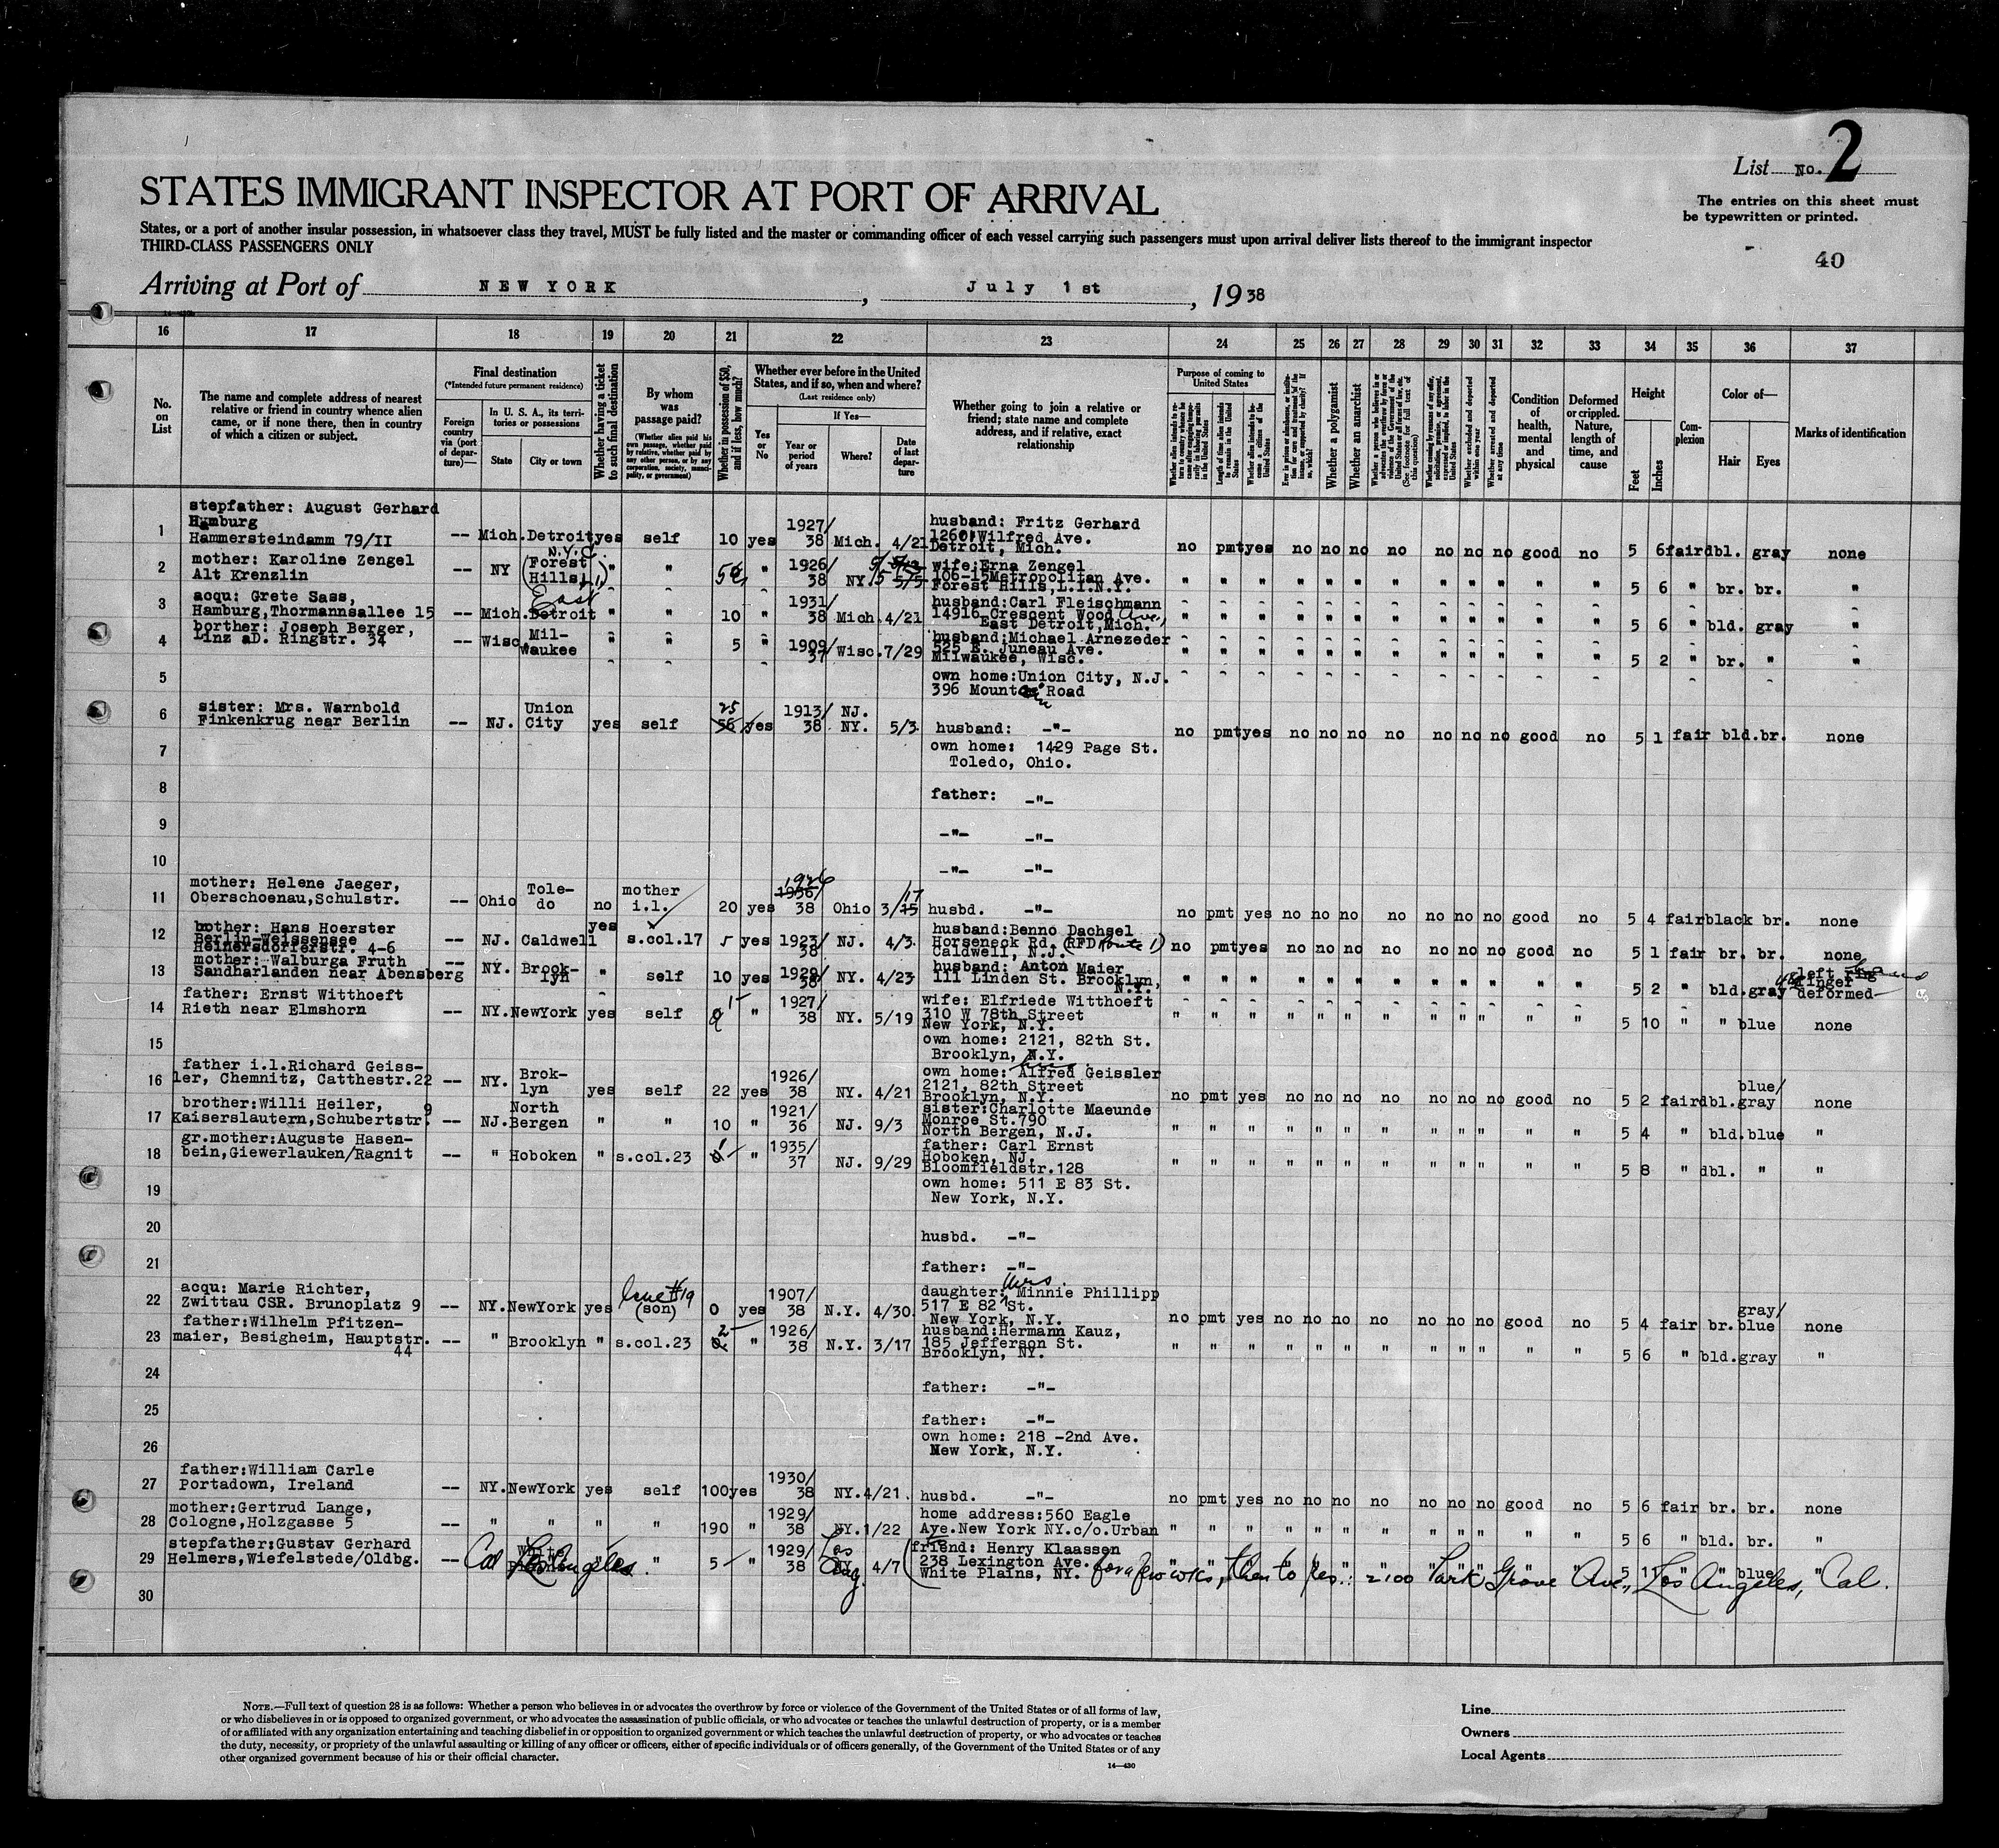 List No. 2
STATES IMMIGRANT INSPECTOR AT PORT OF ARRIVAL
The entries on this sheet must
be typewritten or printed.
States, or a port of another insular possession, in whatsoever class they travel, MUST be fully listed and the master or commanding officer of each vessel carrying such passengers must upon arrival deliver lists thereof to the immigrant inspector
THIRD-CLASS PASSENGERS ONLY
40
Arriving at Port of NEW YORK, July 1st, 1938
16 17 18 19 20 21 22 23 24 25 26 27 28 29 30 31 32 33 34 35 36 37
No. on List
The name and complete address of nearest relative or friend in country whence alien came, or if none there, then in country of which a citizen or subject.
Final destination
(*Intended future permanent residence)
Foreign country via (port of departure)—
In U. S. A., its territories or possessions
State
City or town
Whether having a ticket to such final destination
By whom was passage paid?
(Whether alien paid his own passage, whether paid by relative, whether paid by any other person, or by any corporation, society, municipality, or government)
Whether in possession of $50, and if less, how much?
Whether ever before in the United States, and if so, when and where?
(Last residence only)
Yes or No
If Yes—
Year or period of years
Where?
Date of last departure
Whether going to join a relative or friend; state name and complete address, and if relative, exact relationship
Purpose of coming to United States
Length of time alien intends to remain in the United States
Whether alien intends to become a citizen of the United States
Whether a polygamist
Whether an anarchist
Whether excluded and deported within one year
Whether arrested and deported at any time
Condition of health, mental and physical
Deformed or crippled. Nature, length of time, and cause
Height
Feet
Inches
Complexion
Color of—
Hair
Eyes
Marks of identification
1 stepfather: August Gerhard
Hamburg
Hammersteindamm 79/II -- Mich. Detroit yes self 10 yes 1927/38 Mich. 4/21 husband: Fritz Gerhard
Wilfred Ave.
Detroit, Mich. no pmt yes no no no no no no no good no 5 6 fair dbl. gray none
2 mother: Karoline Zengel
Alt Krenzlin -- NY N.Y.C. (Forest Hills) " " " 1926/38 NY. 5/5 wife: Erna Zengel
106-15 Metropolitan Ave.
Forest Hills, L.I.N.Y. " " " " " " " " " " " " 5 6 " br. br. "
3 acqu: Grete Sass,
Hamburg, Thormannsallee 15 -- Mich. East Detroit " " 10 " 1931/38 Mich. 4/21 husband: Carl Fleischmann
14916 Crescent Wood Ave.
East Detroit, Mich. " " " " " " " " " " " " 5 6 " bld. gray "
4 borther: Joseph Berger,
Linz aD. Ringstr. 34 -- Wisc. Milwaukee " " 5 " 1909/37 Wisc. 7/29 husband: Michael Arnezeder
525 E. Juneau Ave.
Milwaukee, Wisc. " " " " " " " " " " " " 5 2 " br. " "
5 own home: Union City, N.J.
396 Mountain Road
6 sister: Mrs. Warnbold
Finkenkrug near Berlin -- NJ. Union City yes self 25 56 yes 1913/38 NJ. NY. 5/3 husband: -"- no pmt yes no no no no no no no good no 5 1 fair bld. br. none
7 own home: 1429 Page St.
Toledo, Ohio.
8 father: -"-
9 -"- -"-
10 -"- -"-
11 mother: Helene Jaeger,
Oberschoenau, Schulstr. -- Ohio Toledo no mother i.l. 20 yes 1926 1936/38 Ohio 3/17 15 husbd. -"- no pmt yes no no no no no no no good no 5 4 fair black br. none
12 bother: Hans Hoerster
Berlin-Weissensee
Heinersdorferstr. 4-6 -- NJ. Caldwell yes s.col.17 5 yes 1923/38 NJ. 4/3. husband: Benno Dachsel
Horseneck Rd. (RFD Route 1)
Caldwell, N.J. no pmt yes no no no no no no no good no 5 1 fair br. br. none
13 mother: Walburga Fruth
Sandharlanden near Abensberg -- NY. Brooklyn " self 10 yes 1928/38 NY. 4/23 husband: Anton Maier
111 Linden St. Brooklyn,
N.Y. " " " " " " " " " " " " 5 2 " bld. gray left finger deformed
14 father: Ernst Witthoeft
Rieth near Elmshorn -- NY. NewYork yes self " 1927/38 NY. 5/19 wife: Elfriede Witthoeft
310 W 78th Street
New York, N.Y. " " " " " " " " " " " " 5 10 " " blue none
15 own home: 2121, 82th St.
Brooklyn, N.Y.
16 father i.l. Richard Geissler, Chemnitz, Catthestr.22 -- NY. Broklyn yes self 22 yes 1926/38 NY. 4/21 own home: Alfred Geissler
2121, 82th Street
Brooklyn, N.Y. no pmt yes no no no no no no no good no 5 2 fair dbl. blue/gray none
17 brother: Willi Heiler,
Kaiserslautern, Schubertstr. 9 -- NJ. North Bergen " " 10 " 1921/36 NJ. 9/3 sister: Charlotte Maeunde
Monroe St.790
North Bergen, N.J. " " " " " " " " " " " " 5 4 " bld. blue "
18 gr.mother: Auguste Hasenbein, Giewerlauken/Ragnit -- " Hoboken " s.col.23 " 1935/37 NJ. 9/29 father: Carl Ernst
Hoboken, NJ.
Bloomfieldstr.128 " " " " " " " " " " " " 5 8 " dbl. " "
19 own home: 511 E 83 St.
New York, N.Y.
20 husbd. -"-
21 father: -"-
22 acqu: Marie Richter,
Zwittau CSR. Brunoplatz 9 -- NY. NewYork yes (son) 0 yes 1907/38 N.Y. 4/30. daughter: Mrs. Minnie Phillipp
517 E 82 St.
New York, N.Y. no pmt yes no no no no no no no good no 5 4 fair br. gray/blue none
23 father: Wilhelm Pfitzenmaier, Besigheim, Hauptstr. 44 -- " Brooklyn " s.col.23 2 " 1926/38 N.Y. 3/17 husband: Hermann Kauz,
185 Jefferson St.
Brooklyn, NY. " " " " " " " " " " " " 5 6 " bld. gray "
24 father: -"-
25 father: -"-
26 own home: 218 -2nd Ave.
New York, N.Y.
27 father: William Carle
Portadown, Ireland -- NY. NewYork yes self 100 yes 1930/38 NY. 4/21. husbd. -"- no pmt yes no no no no no no no good no 5 6 fair br. br. none
28 mother: Gertrud Lange,
Cologne, Holzgasse 5 -- " " " " 190 " 1929/38 NY. 1/22 home address: 560 Eagle
Ave. New York NY. c/o. Urban " " " " " " " " " " " " 5 6 " bld. br. "
29 stepfather: Gustav Gerhard
Helmers, Wiefelstede/Oldbg. -- Cal Los Angeles " " 5 " 1929/38 Los Ang. 4/7 (friend: Henry Klaassen
238 Lexington Ave.
White Plains, NY. for a few wks, then to Res.: 2100 Park Grove Ave, Los Angeles, Cal. 5 11 " " blue "
30
NOTE.—Full text of question 28 is as follows: Whether a person who believes in or advocates the overthrow by force or violence of the Government of the United States or of all forms of law,
or who disbelieves in or is opposed to organized government, or who advocates the assassination of public officials, or who advocates or teaches the unlawful destruction of property, or is a member
of or affiliated with any organization entertaining and teaching disbelief in or opposition to organized government or which teaches the unlawful destruction of property, or who advocates or teaches
the duty, necessity, or propriety of the unlawful assaulting or killing of any officer or officers, either of specific individuals or of officers generally, of the Government of the United States or of any
other organized government because of his or their official character.
14—430
Line
Owners
Local Agents